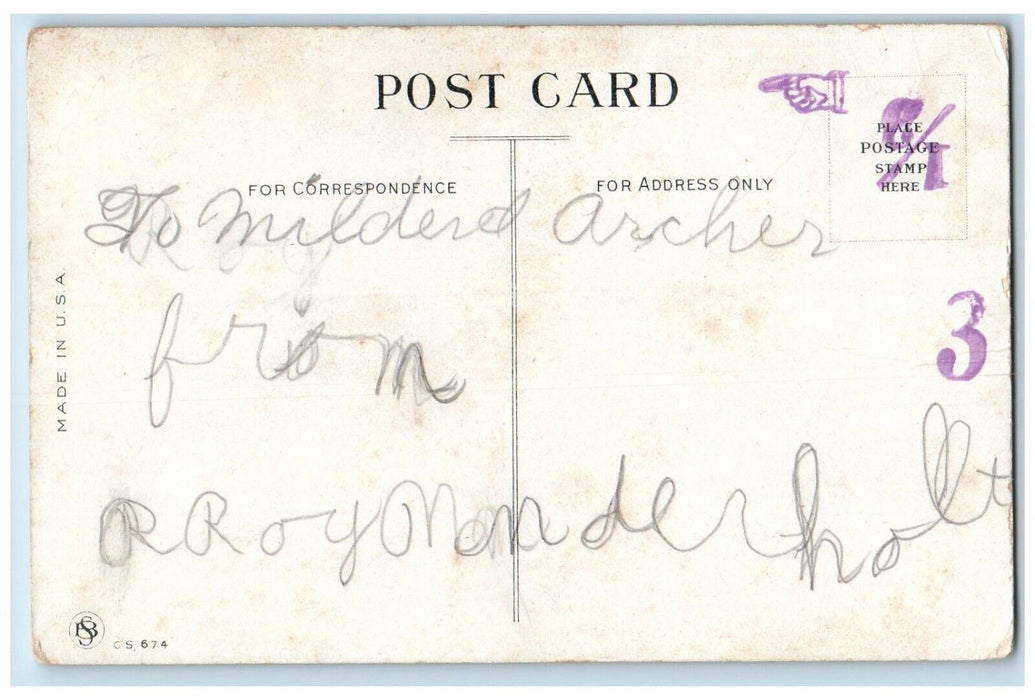 POST CARD
FOR CORRESPONDENCE
FOR ADDRESS ONLY
PLACE
POSTAGE
STAMP
HERE
To Milderd Archer
from
R Roy
3
MADE IN U.S.A.
C S, 674